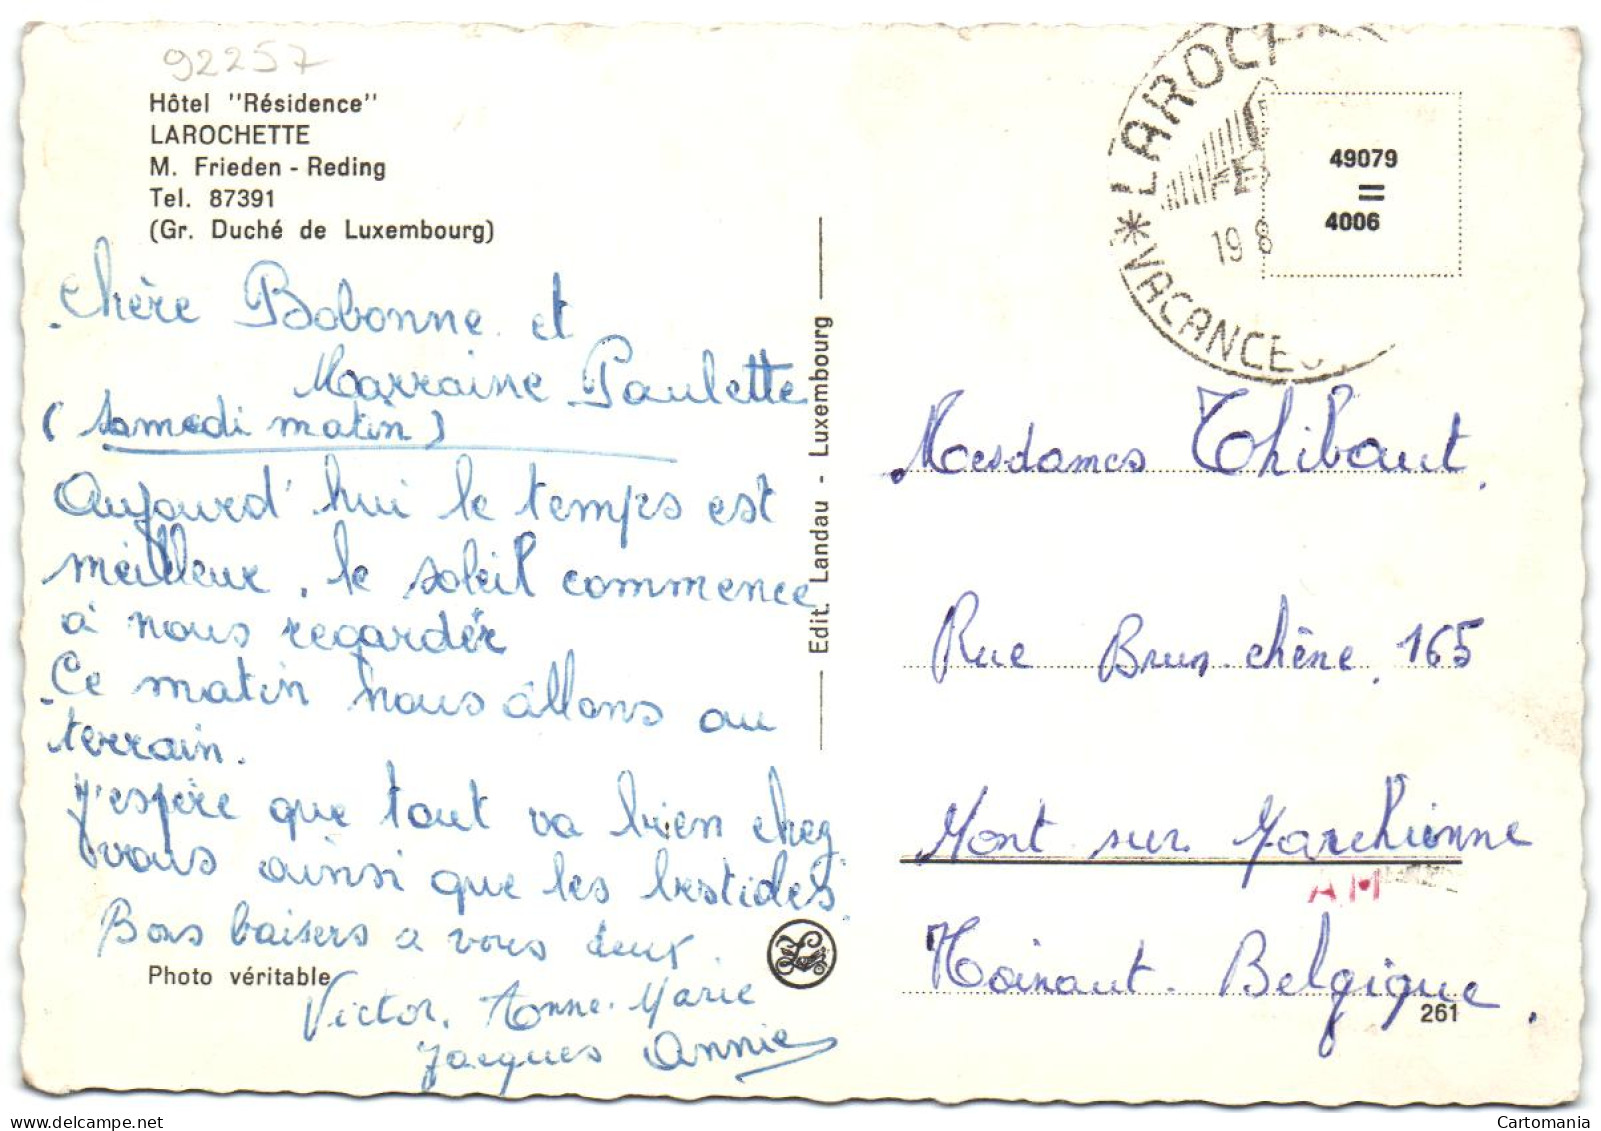 92257
Hôtel "Résidence"
LAROCHETTE
M. Frieden - Reding
Tel. 87391
(Gr. Duché de Luxembourg)
Chère Bobonne et
Marraine Paulette
(samedi matin)
Aujourd'hui le temps est
meilleur, le soleil commence
à nous regarder
Ce matin nous allons au
terrain.
J'espère que tout va bien chez
vous ainsi que les bestides
Bons baisers a vous deux.
Photo véritable
Victor, Anne-Marie
Jacques Annie
Edit. Landau - Luxembourg
LAROCH
VACANCES
19 8
49079
=
4006
Mesdames Thibaut.
Rue Brun chêne, 165
Mont sur Marchienne
AM
Hainaut. Belgique.
261
Cartomania